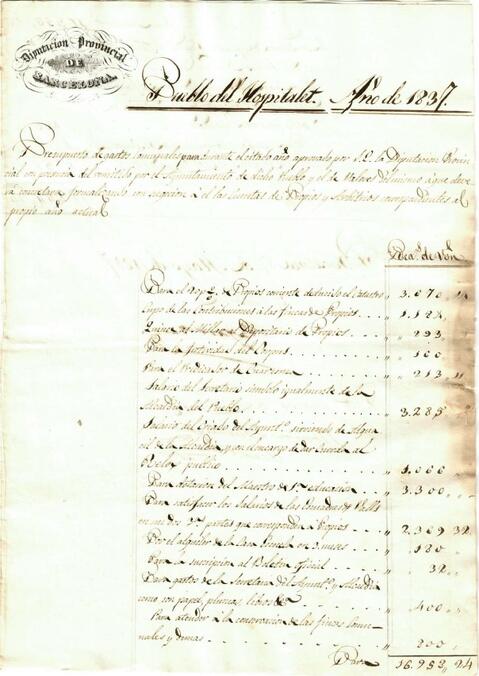 Diputacion Provincial
DE
BARCELONA.
Pueblo del Hospitalet. Año de 1837.
Presupuesto de gastos municipales para durante el citado año aprovado por S.E. la Diputacion Provin
cial con presencia del remitido por el Ayuntamiento de dicho Pueblo y el de Valores del mismo á que deve
rá concretarse formalizando con sugecion á él las Cuentas de Propios y Arbitrios correspondientes al
propio año actual
Rea.s de Von
Para el 20 p% de Propios corriente deducido el Catastro 3.070
Cupo de las Contribuciones á las fincas de Propios 1.124
Quince al Millar al Depositario de Propios 293
Para la festividad del Corpus 160
Para el Predicador de Cuaresma 213
Salario del Secretario siendolo igualmente de la
Alcaldia del Pueblo 3.285
Salario del Criado del Ayunt.o sirviendo de Algua
cil de la Alcaldia y con el encargo de dar Cuerda al
Relox publico 1.000
Para dotacion del Maestro de 1.ra educacion 3.300
Para satisfacer los Salarios de los
en sus dos 3.as partes que corresponden á Propios 2.369 32
Por el alquiler de la Casa Escuela en 3 meses 180
Para la suscripcion al Boletin oficial 32
Para gastos de la Secretaria del Ayunt.o y Alcaldia
como son papel, plumas, libros &a 400
Para atender á la conservacion de las fincas Comu-
nales y demas 800
Para 16.252 24